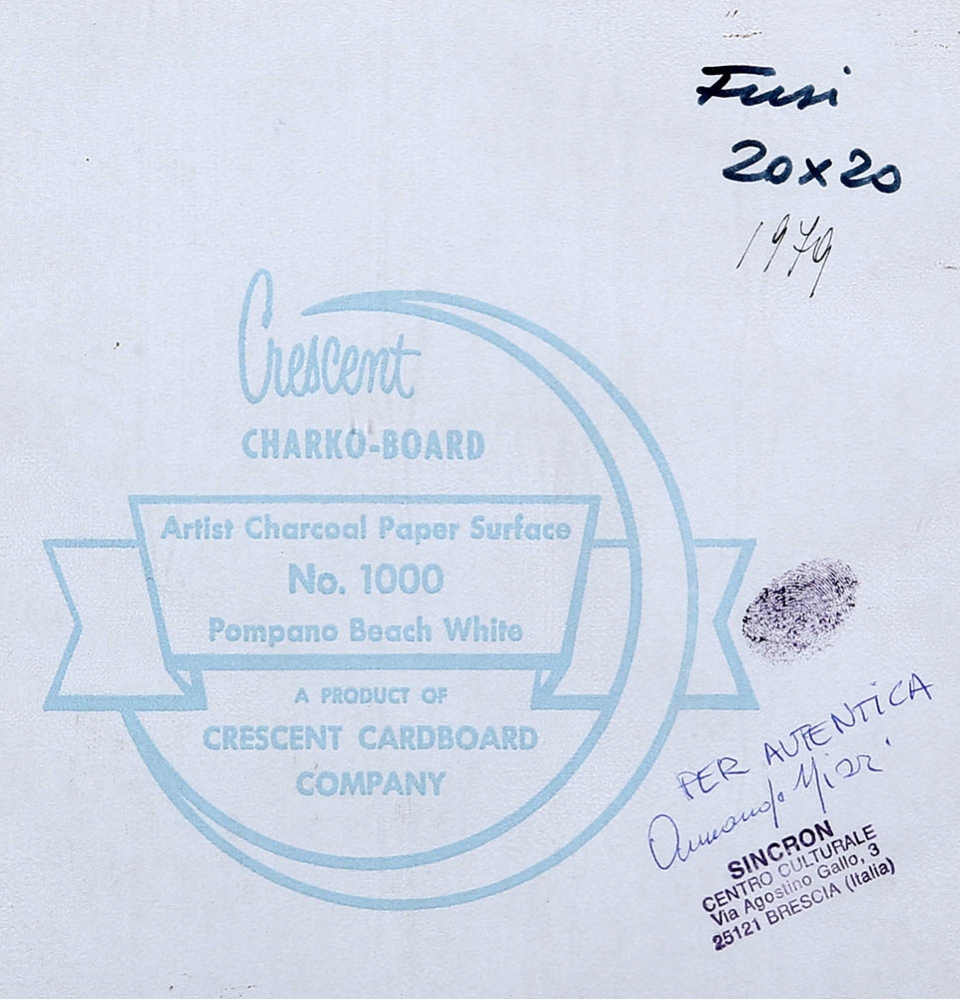 Fusi
20x20
1979
Crescent
CHARKO-BOARD
Artist Charcoal Paper Surface
No. 1000
Pompano Beach White
A PRODUCT OF
CRESCENT CARDBOARD
COMPANY
PER AUTENTICA
Armando Nizzi
SINCRON
CENTRO CULTURALE
Via Agostino Gallo, 3
25121 BRESCIA (Italia)